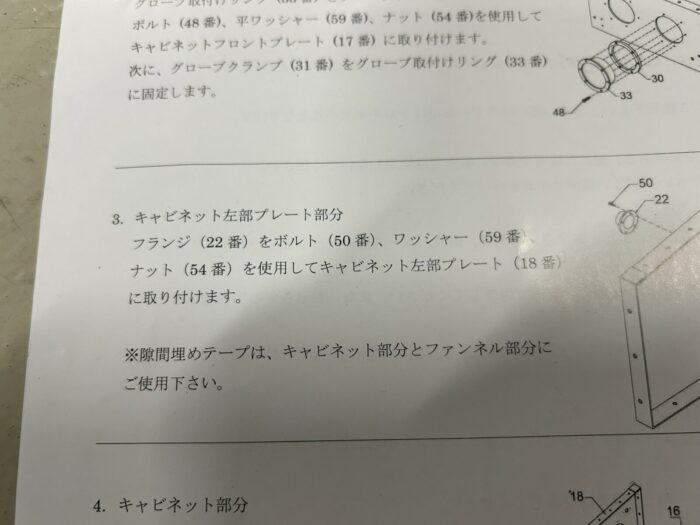 ボルト（48 番）、平ワッシャー（59 番）、ナット（54 番)を使用して
キャビネットフロントプレート（17 番）に取り付けます。
次に、グローブクランプ（31 番）をグローブ取付けリング（33 番）
に固定します。
30
33
48
3. キャビネット左部プレート部分
フランジ（22 番）をボルト（50 番）、ワッシャー（59 番）、
ナット（54 番）を使用してキャビネット左部プレート（18 番）
に取り付けます。
50
22
※隙間埋めテープは、キャビネット部分とファンネル部分に
ご使用下さい。
4. キャビネット部分
18
16